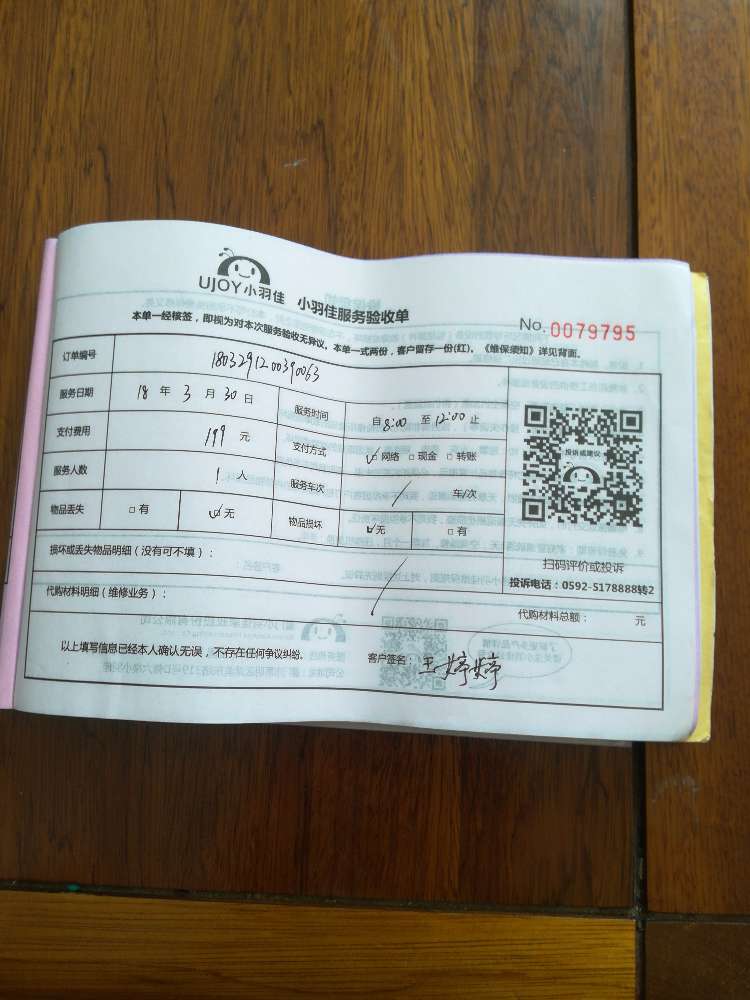 UJOY小羽佳 小羽佳服务验收单
No. 0079795
本单一经核签，即视为对本次服务验收无异议。本单一式两份，客户留存一份(红)。《维保须知》详见背面。
订单编号 1803291200390063
服务日期 18 年 3 月 30 日 服务时间 自 8:00 至 12:00 止
支付费用 199 元 支付方式 ☑网络 □现金 □转账
服务人数 1 人 服务车次 / 车/次
物品丢失 □有 ☑无 物品损坏 ☑无 □有
投诉或建议
扫码评价或投诉
投诉电话：0592-5178888转2
损坏或丢失物品明细（没有可不填）：
代购材料明细（维修业务）： / 代购材料总额： 元
以上填写信息已经本人确认无误，不存在任何争议纠纷。 客户签名：王婷婷